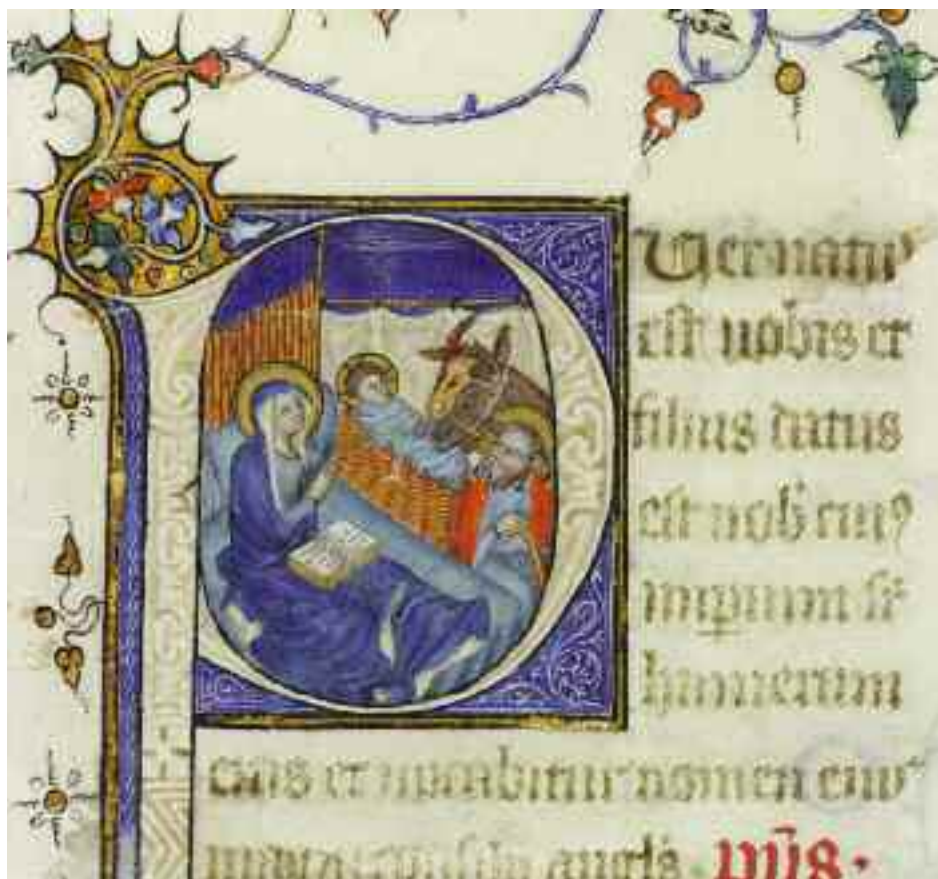 PUer natuꝰ
est nobis et
filius datus
est nob̄ cuiꝰ
imꝑium sr̄
humerum
eius et uocabitur nomen eiuꝰ
magni consilii angl̄s.